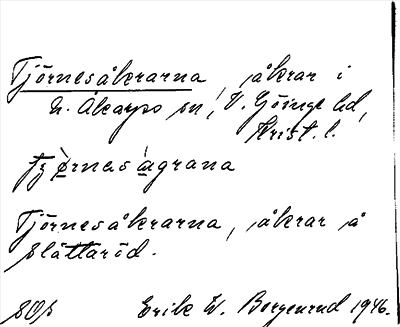 Tjörnesåkrarna, åkrar i
N. Åkarps sn, V. Göinge hd,
Krist. l.
tjørnesågrana
Tjörnesåkrarna, åkrar å
Slättaröd.
Erik W. Borgenrud 1946.